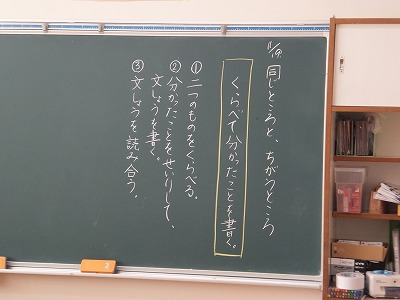 11/19. 同じところと、ちがうところ
くらべて分かったことを書く。
①二つのものをくらべる。
②分かったことをせいりして、
文しょうを書く。
③文しょうを読み合う。